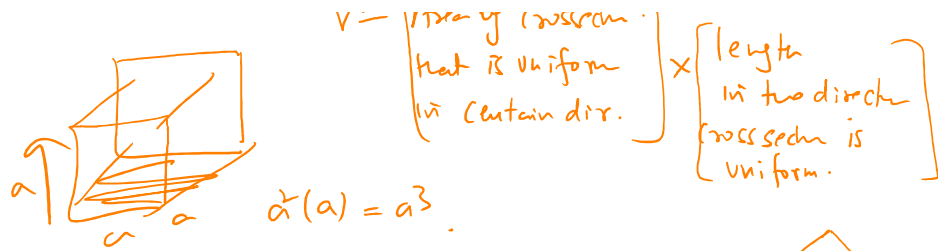 V = [Area of crosssecn.
that is uniform
in certain dir.]
× [length
in the directn
crosssecn is
uniform.]
a
a
a
a²(a) = a³.